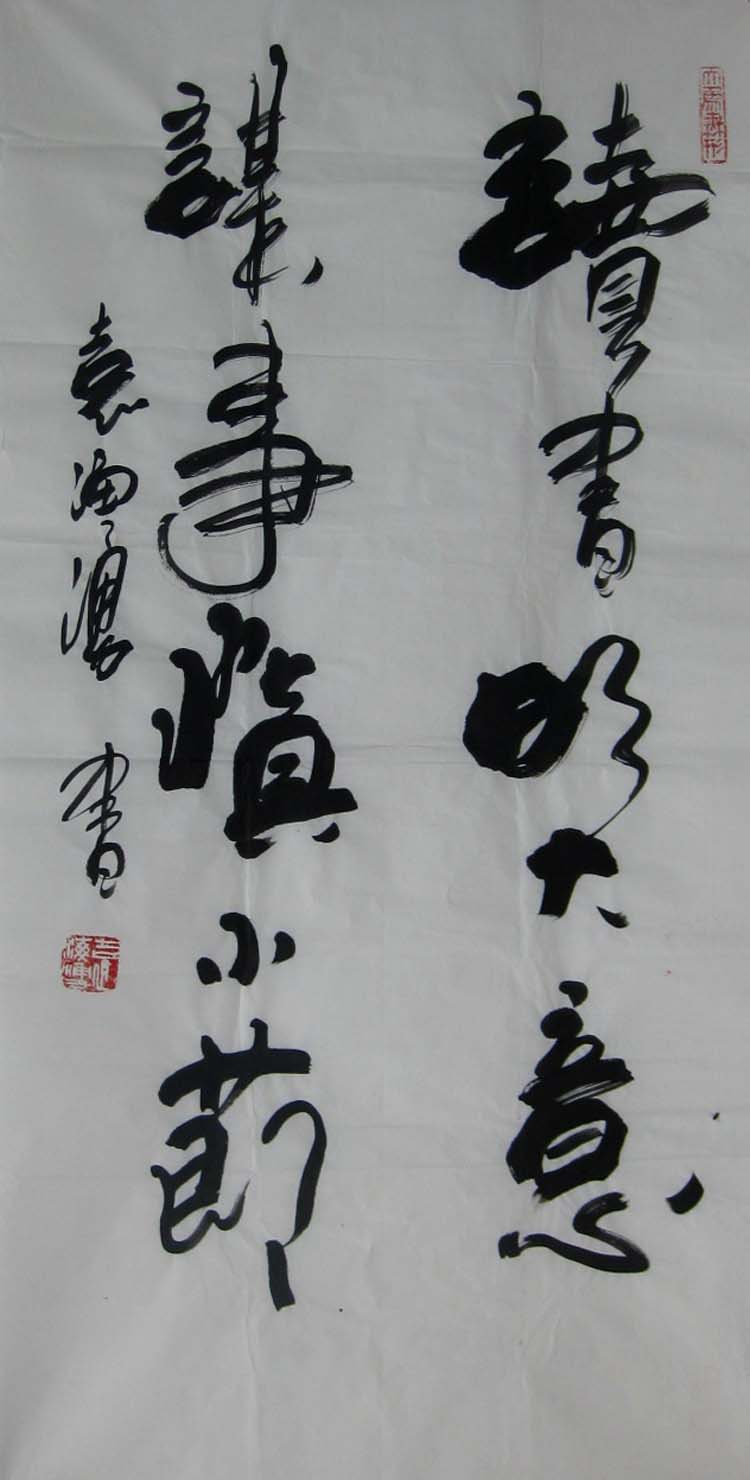 讀書明大意
謀事慎小節
袁海潮書